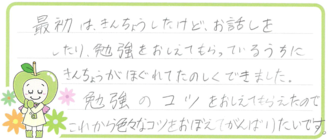 最初は、きんちょうしたけど、お話しを
したり、勉強をおしえてもらっているうちに
きんちょうがほぐれてたのしくできました。
勉強のコツをおしえてもらえたので
これから色々なコツをおぼえてがんばりたいです。